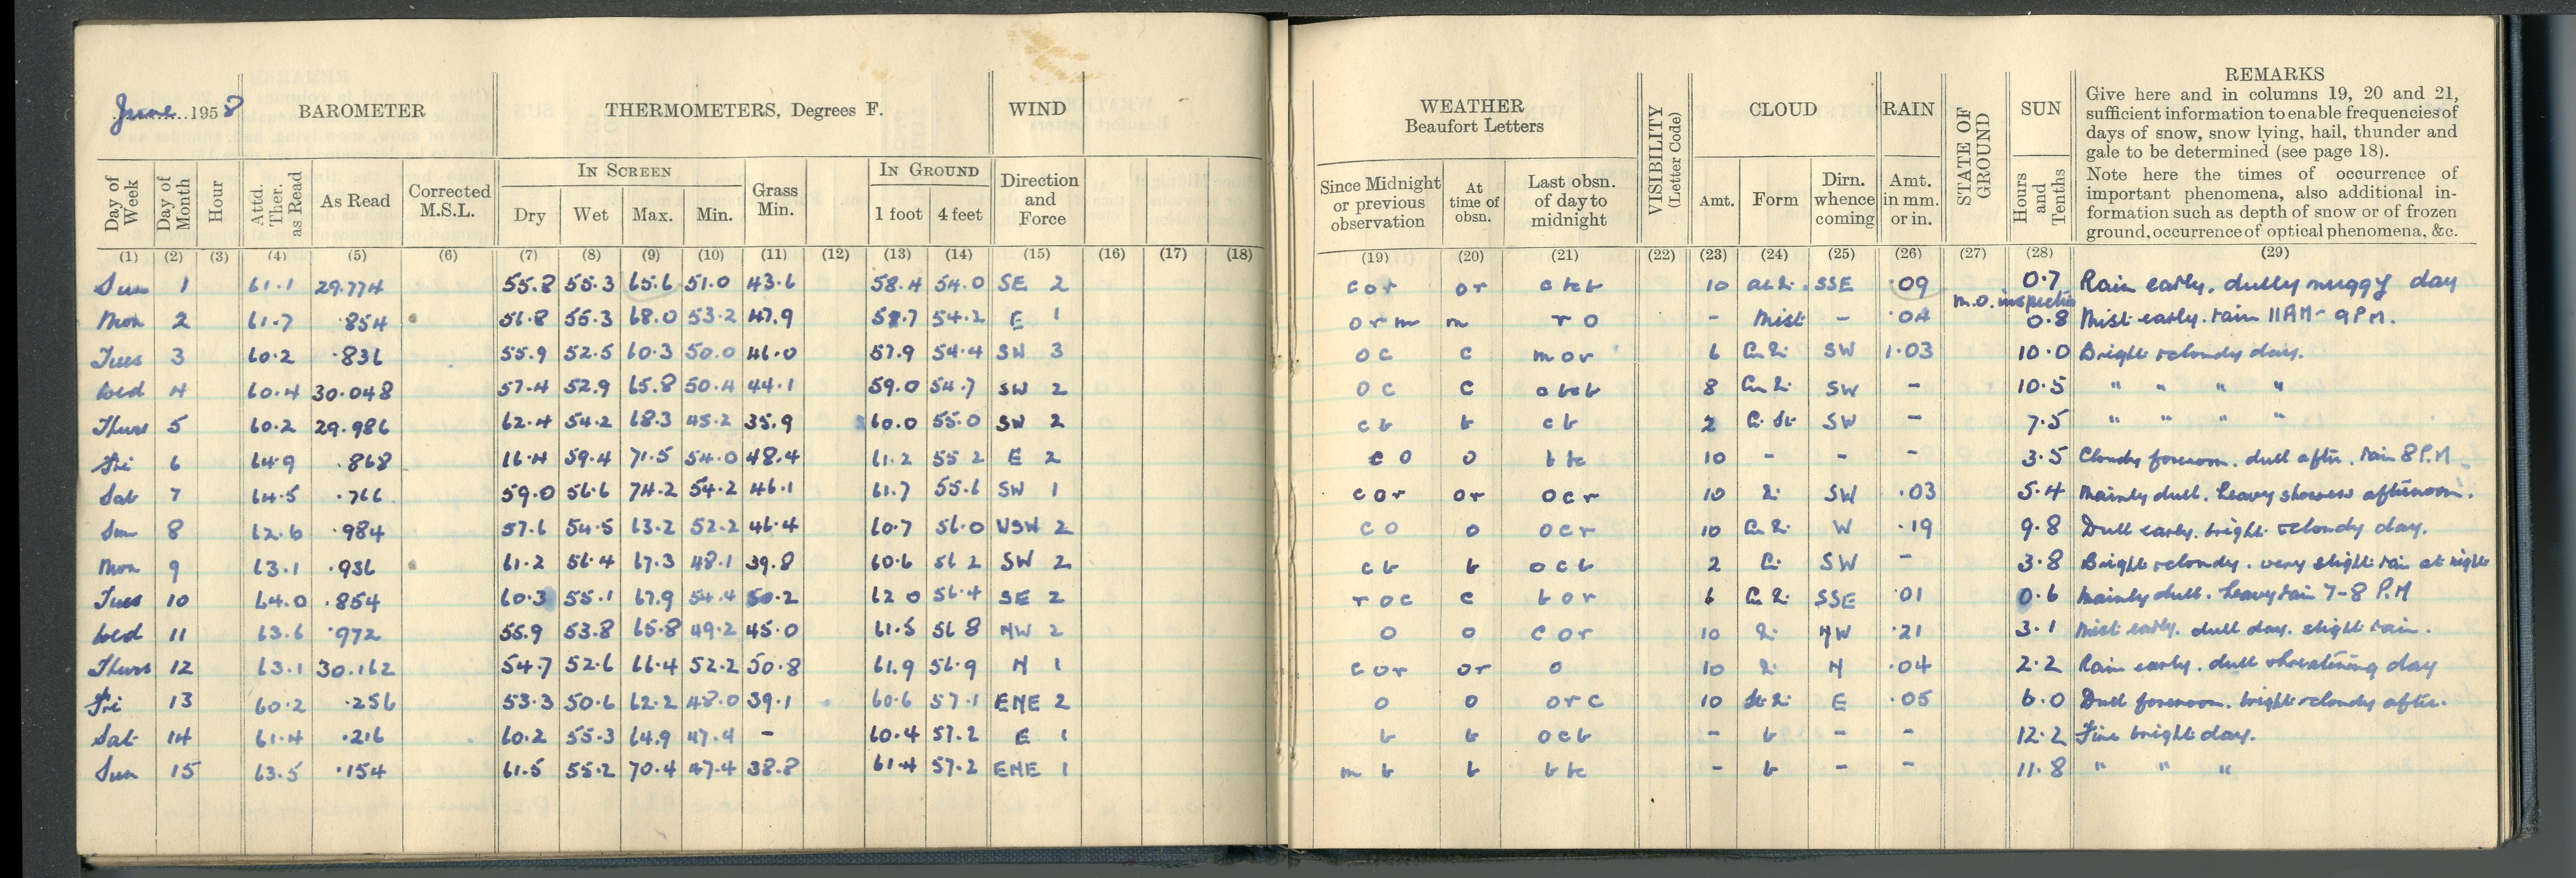 June 1958 BAROMETER THERMOMETERS, Degrees F. WIND
Day of Week Day of Month Hour Attd. Ther. as Read As Read Corrected M.S.L. IN SCREEN Dry Wet Max. Min. Grass Min. IN GROUND 1 foot 4 feet Direction and Force
(1) (2) (3) (4) (5) (6) (7) (8) (9) (10) (11) (12) (13) (14) (15) (16) (17) (18)
Sun 1 61.1 29.774 55.8 55.3 65.6 51.0 43.6 58.4 54.0 SE 2
Mon 2 61.7 .854 56.8 55.3 68.0 53.2 47.9 58.7 54.2 E 1
Tues 3 60.2 .836 55.9 52.5 60.3 50.0 46.0 57.9 54.4 SW 3
Wed 4 60.4 30.048 57.4 52.9 65.8 50.4 44.1 59.0 54.7 SW 2
Thurs 5 60.2 29.986 62.4 54.2 68.3 45.2 35.9 60.0 55.0 SW 2
Fri 6 64.9 .868 66.4 59.4 71.5 54.0 48.4 61.2 55.2 E 2
Sat 7 64.5 .766 59.0 56.6 74.2 54.2 46.1 61.7 55.6 SW 1
Sun 8 62.6 .984 57.6 54.5 63.2 52.2 46.4 60.7 56.0 WSW 2
Mon 9 63.1 .936 61.2 56.4 67.3 48.1 39.8 60.6 56.2 SW 2
Tues 10 64.0 .854 60.3 55.1 67.9 54.4 50.2 62.0 56.4 SE 2
Wed 11 63.6 .972 55.9 53.8 65.8 49.2 45.0 61.5 56.8 NW 2
Thurs 12 63.1 30.162 54.7 52.6 66.4 52.2 50.8 61.9 56.9 N 1
Fri 13 60.2 .256 53.3 50.6 62.2 48.0 39.1 60.6 57.1 ENE 2
Sat 14 61.4 .216 60.2 55.3 64.9 47.4 - 60.4 57.2 E 1
Sun 15 63.5 .154 61.5 55.2 70.4 47.4 38.8 61.4 57.2 ENE 1
WEATHER Beaufort Letters VISIBILITY (Letter Code) CLOUD RAIN STATE OF GROUND SUN REMARKS
Give here and in columns 19, 20 and 21,
sufficient information to enable frequencies of
days of snow, snow lying, hail, thunder and
gale to be determined (see page 18).
Note here the times of occurrence of
important phenomena, also additional in-
formation such as depth of snow or of frozen
ground, occurrence of optical phenomena, &c.
Since Midnight or previous observation At time of obsn. Last obsn. of day to midnight Amt. Form Dirn. whence coming Amt. in mm. or in. Hours and Tenths
(19) (20) (21) (22) (23) (24) (25) (26) (27) (28) (29)
c o r o r c bc b 10 SSE .09 0.7 Rain early. dully muggy day
M.O. inspection
o r m m r o - Mist - .04 0.8 Mist early. rain 11AM - 9PM.
o c c m o r 6 SW 1.03 10.0 Bright & cloudy day.
o c c 8 SW - 10.5 " " " "
c b b c b 2 Ci St SW - 7.5 " " " "
c o o b bc 10 - - - 3.5 Cloudy forenoon. dull after. rain 8 P.M
c o r o r o c r 10 SW .03 5.4 Mainly dull. heavy showers afternoon.
c o o o c r 10 W .19 9.8 Dull early. bright & cloudy day.
c b b o c b 2 Ci SW - 3.8 Bright & cloudy. very slight rain at night
r o c c b o r 6 SSE .01 0.6 Mainly dull. heavy rain 7-8 P.M
o o c o r 10 NW .21 3.1 Mist early. dull day. slight rain.
c o r o r o 10 N .04 2.2 Rain early. dull threatening day
o o o r c 10 E .05 6.0 Dull forenoon. bright & cloudy after.
b b o c b - b - - 12.2 Fine bright day.
m b b b bc - b - - 11.8 " " "